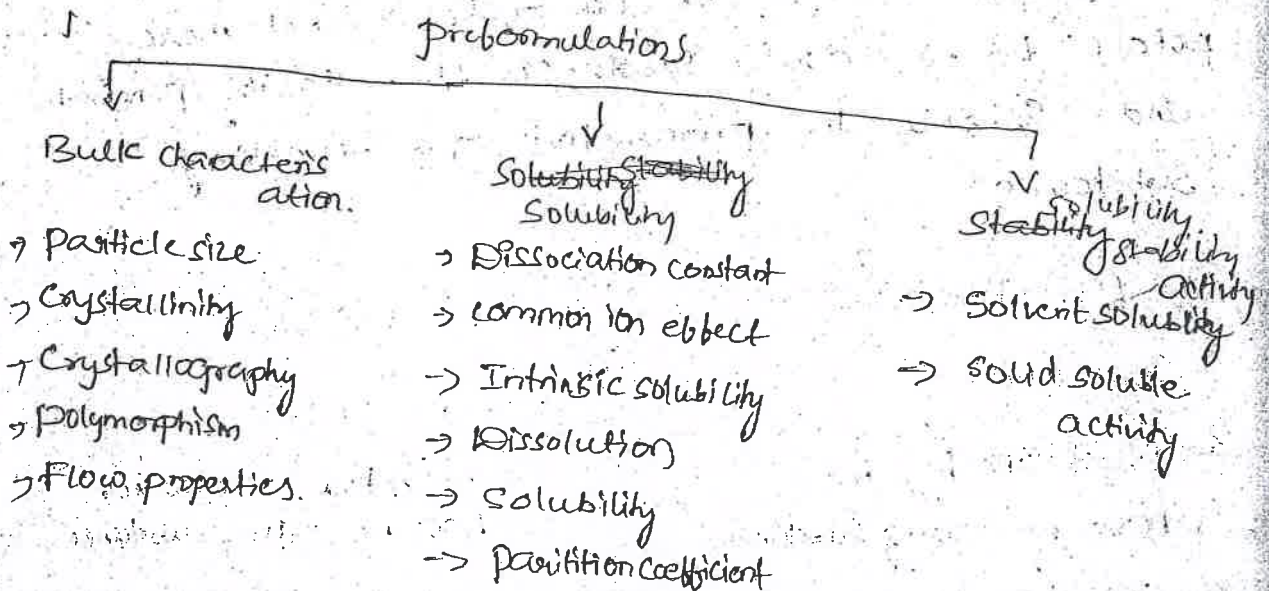 preformulations
Bulk characteris
ation.
→ particle size
→ Crystallinity
→ Crystallography
→ polymorphism
→ Flow properties.
Solubility Stability
Solubility
→ Dissociation constant
→ common ion effect
→ Intrinsic solubility
→ Dissolution
→ solubility
→ paritition coefficient
solubility
Stability stability
activity
→ Solvent solublity
→ solid soluble
activity